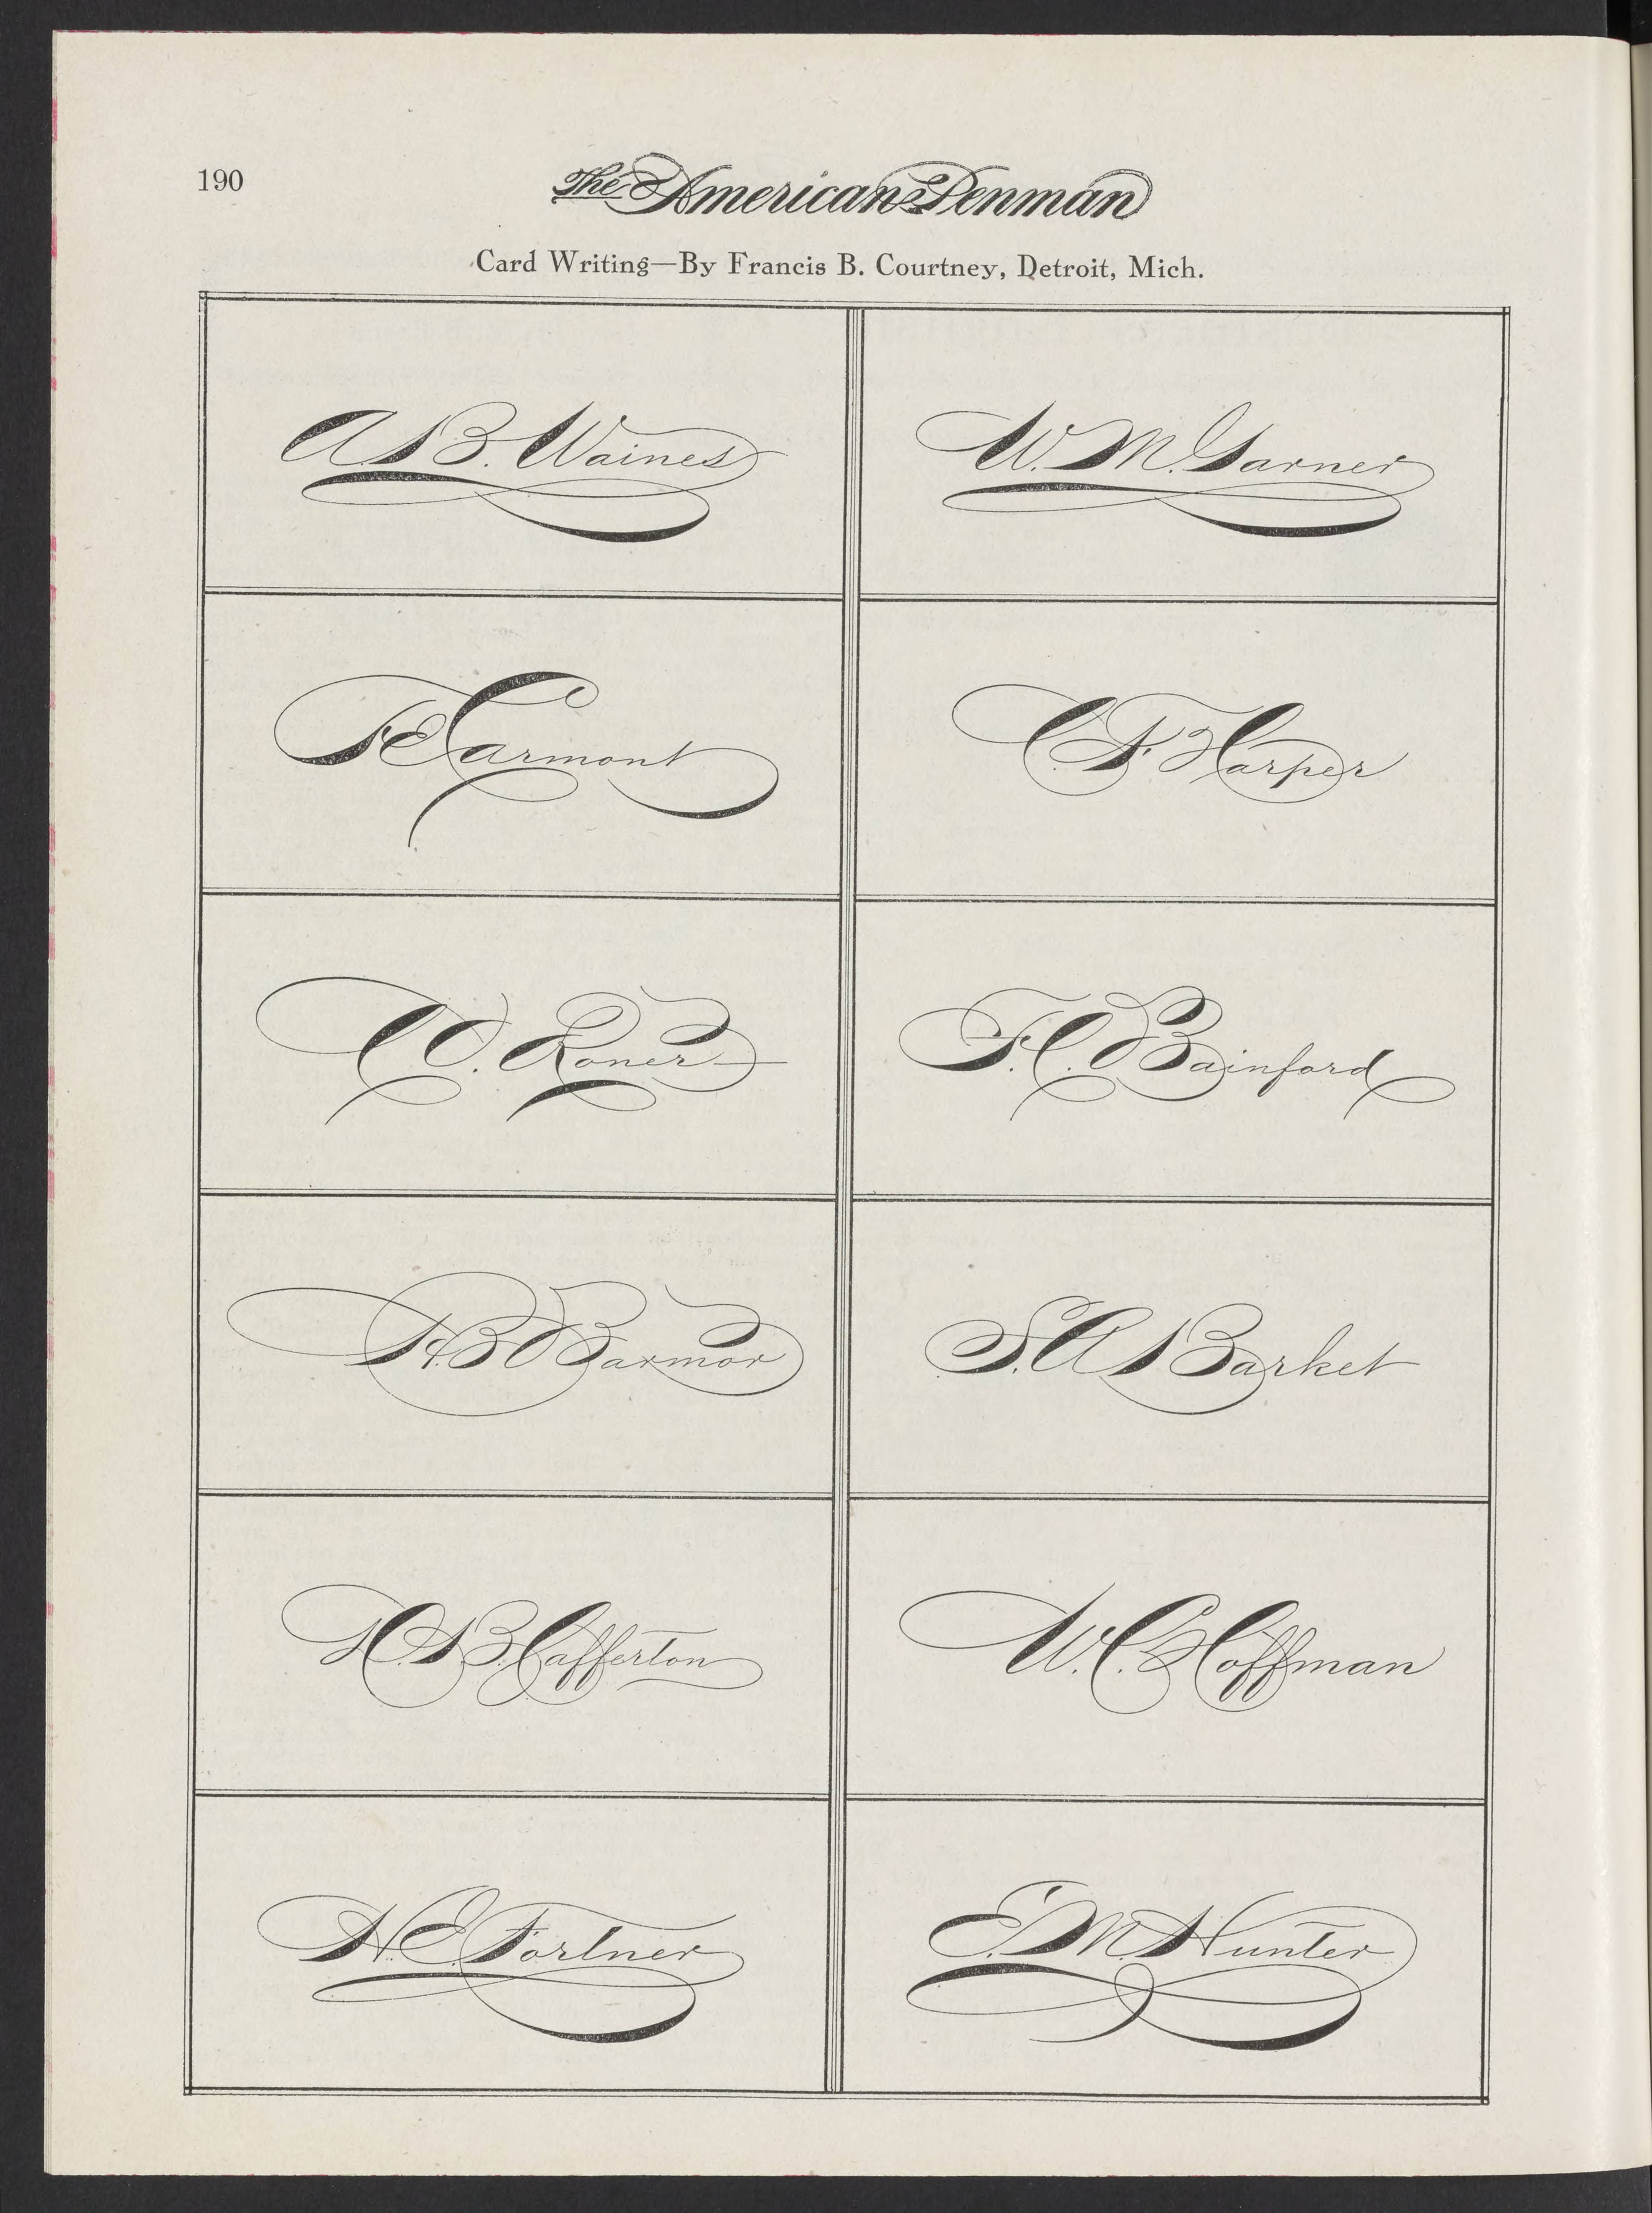 190
The American Penman
Card Writing—By Francis B. Courtney, Detroit, Mich.
A. B. Waines
W. M. Garner
F E Carmont
C. F. Harper
C. O. Roner
F. C. Bainford
H. B. Barmor
S. A. Barket
H. B. Cafferton
W. C. Hoffman
H. E. Fortner
E. M. Hunter